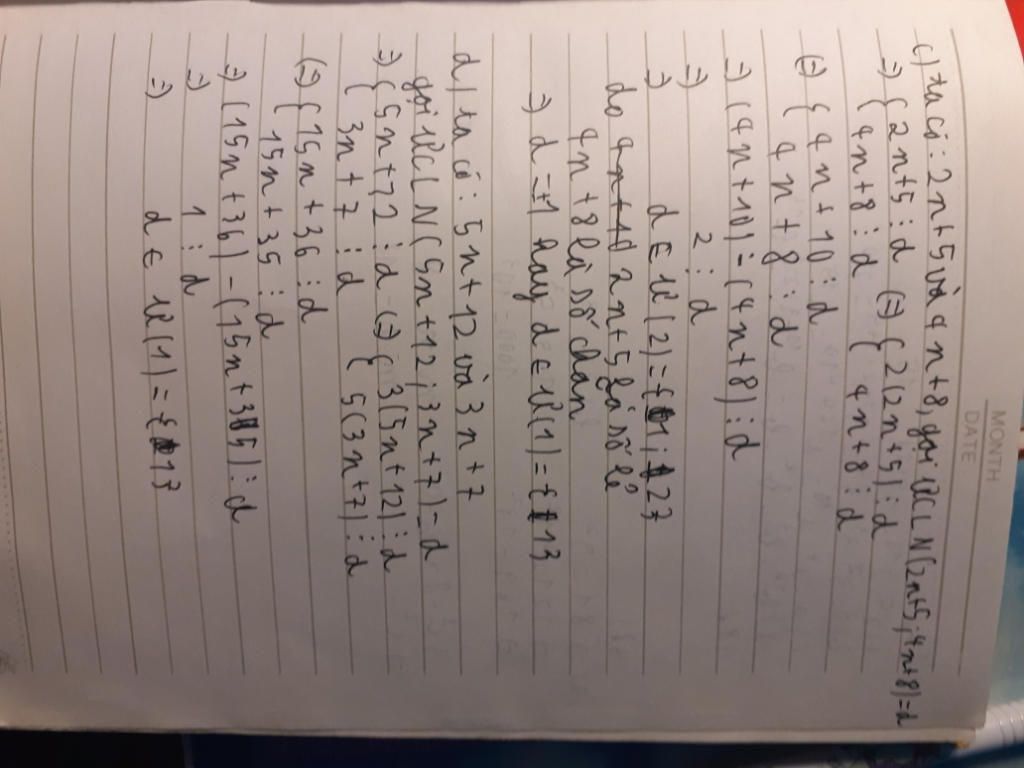 MONTH
DATE
c) ta có: 2n+5 và 4n+8, gọi ƯCLN(2n+5, 4n+8)=d
=) { 2n+5 ⋮ d (=) { 2(2n+5) ⋮ d
{ 4n+8 ⋮ d { 4n+8 ⋮ d
(=) { 4n+10 ⋮ d
4n+8 ⋮ d
=) (4n+10) - (4n+8) ⋮ d
=) 2 ⋮ d
=) d ∈ Ư(2) = {1; 2}
do 2n+5 là số lẻ
4n+8 là số chẵn
=) d = 1 hay d ∈ Ư(1) = {1}
d) ta có: 5n+12 và 3n+7
gọi ƯCLN(5n+12; 3n+7) = d
=) { 5n+12 ⋮ d (=) { 3(5n+12) ⋮ d
{ 3n+7 ⋮ d { 5(3n+7) ⋮ d
(=) { 15n+36 ⋮ d
15n+35 ⋮ d
=) (15n+36) - (15n+35) ⋮ d
=) 1 ⋮ d
=) d ∈ Ư(1) = {1}